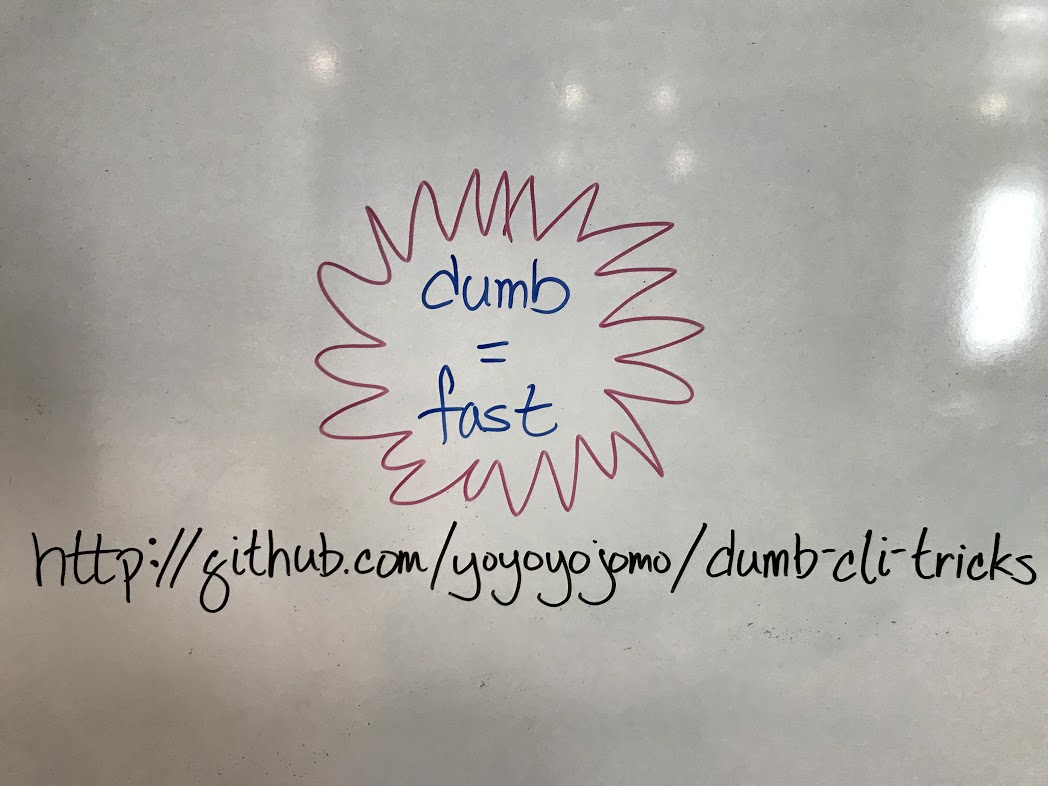 dumb
=
fast
http://github.com/yoyoyojomo/dumb-cli-tricks